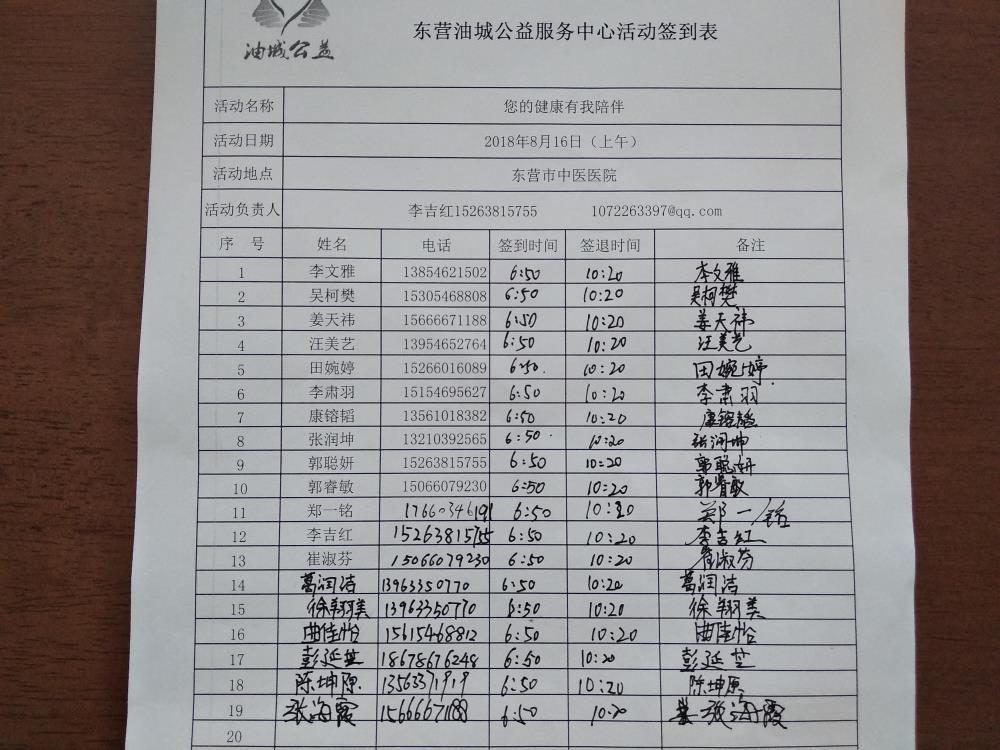 油城公益
东营油城公益服务中心活动签到表
活动名称 您的健康有我陪伴
活动日期 2018年8月16日（上午）
活动地点 东营市中医医院
活动负责人 李吉红15263815755 1072263397@qq.com
序 号 姓名 电话 签到时间 签退时间 备注
1 李文雅 13854621502 6:50 10:20 李文雅
2 吴柯樊 15305468808 6:50 10:20 吴柯樊
3 姜天祎 15666671188 6:50 10:20 姜天祎
4 汪美艺 13954652764 6:50 10:20 汪美艺
5 田婉婷 15266016089 6:50. 10:20 田婉婷
6 李肃羽 15154695627 6:50 10:20 李肃羽
7 康镕韬 13561018382 6:50 10:20 康镕韬
8 张润坤 13210392565 6:50. 10:20 张润坤
9 郭聪妍 15263815755 6:50 10:20 郭聪妍
10 郭睿敏 15066079230 6:50 10:20 郭睿敏
11 郑一铭 17660346191 6:50 10:20 郑一铭
12 李吉红 15263815755 6:50 10:20 李吉红
13 崔淑芬 15066079230 6:50 10:20 崔淑芬
14 葛润洁 13963350770 6:50 10:20 葛润洁
15 徐翔美 13963350770 6:50 10:20 徐翔美
16 曲佳怡 15615468812 6:50 10:20 曲佳怡
17 彭延芝 18678676248 6:50 10:20 彭延芝
18 陈坤原 13563371919 6:50 10:20 陈坤原
19 张海霞 15666671188 6:50 10:20 张海霞
20